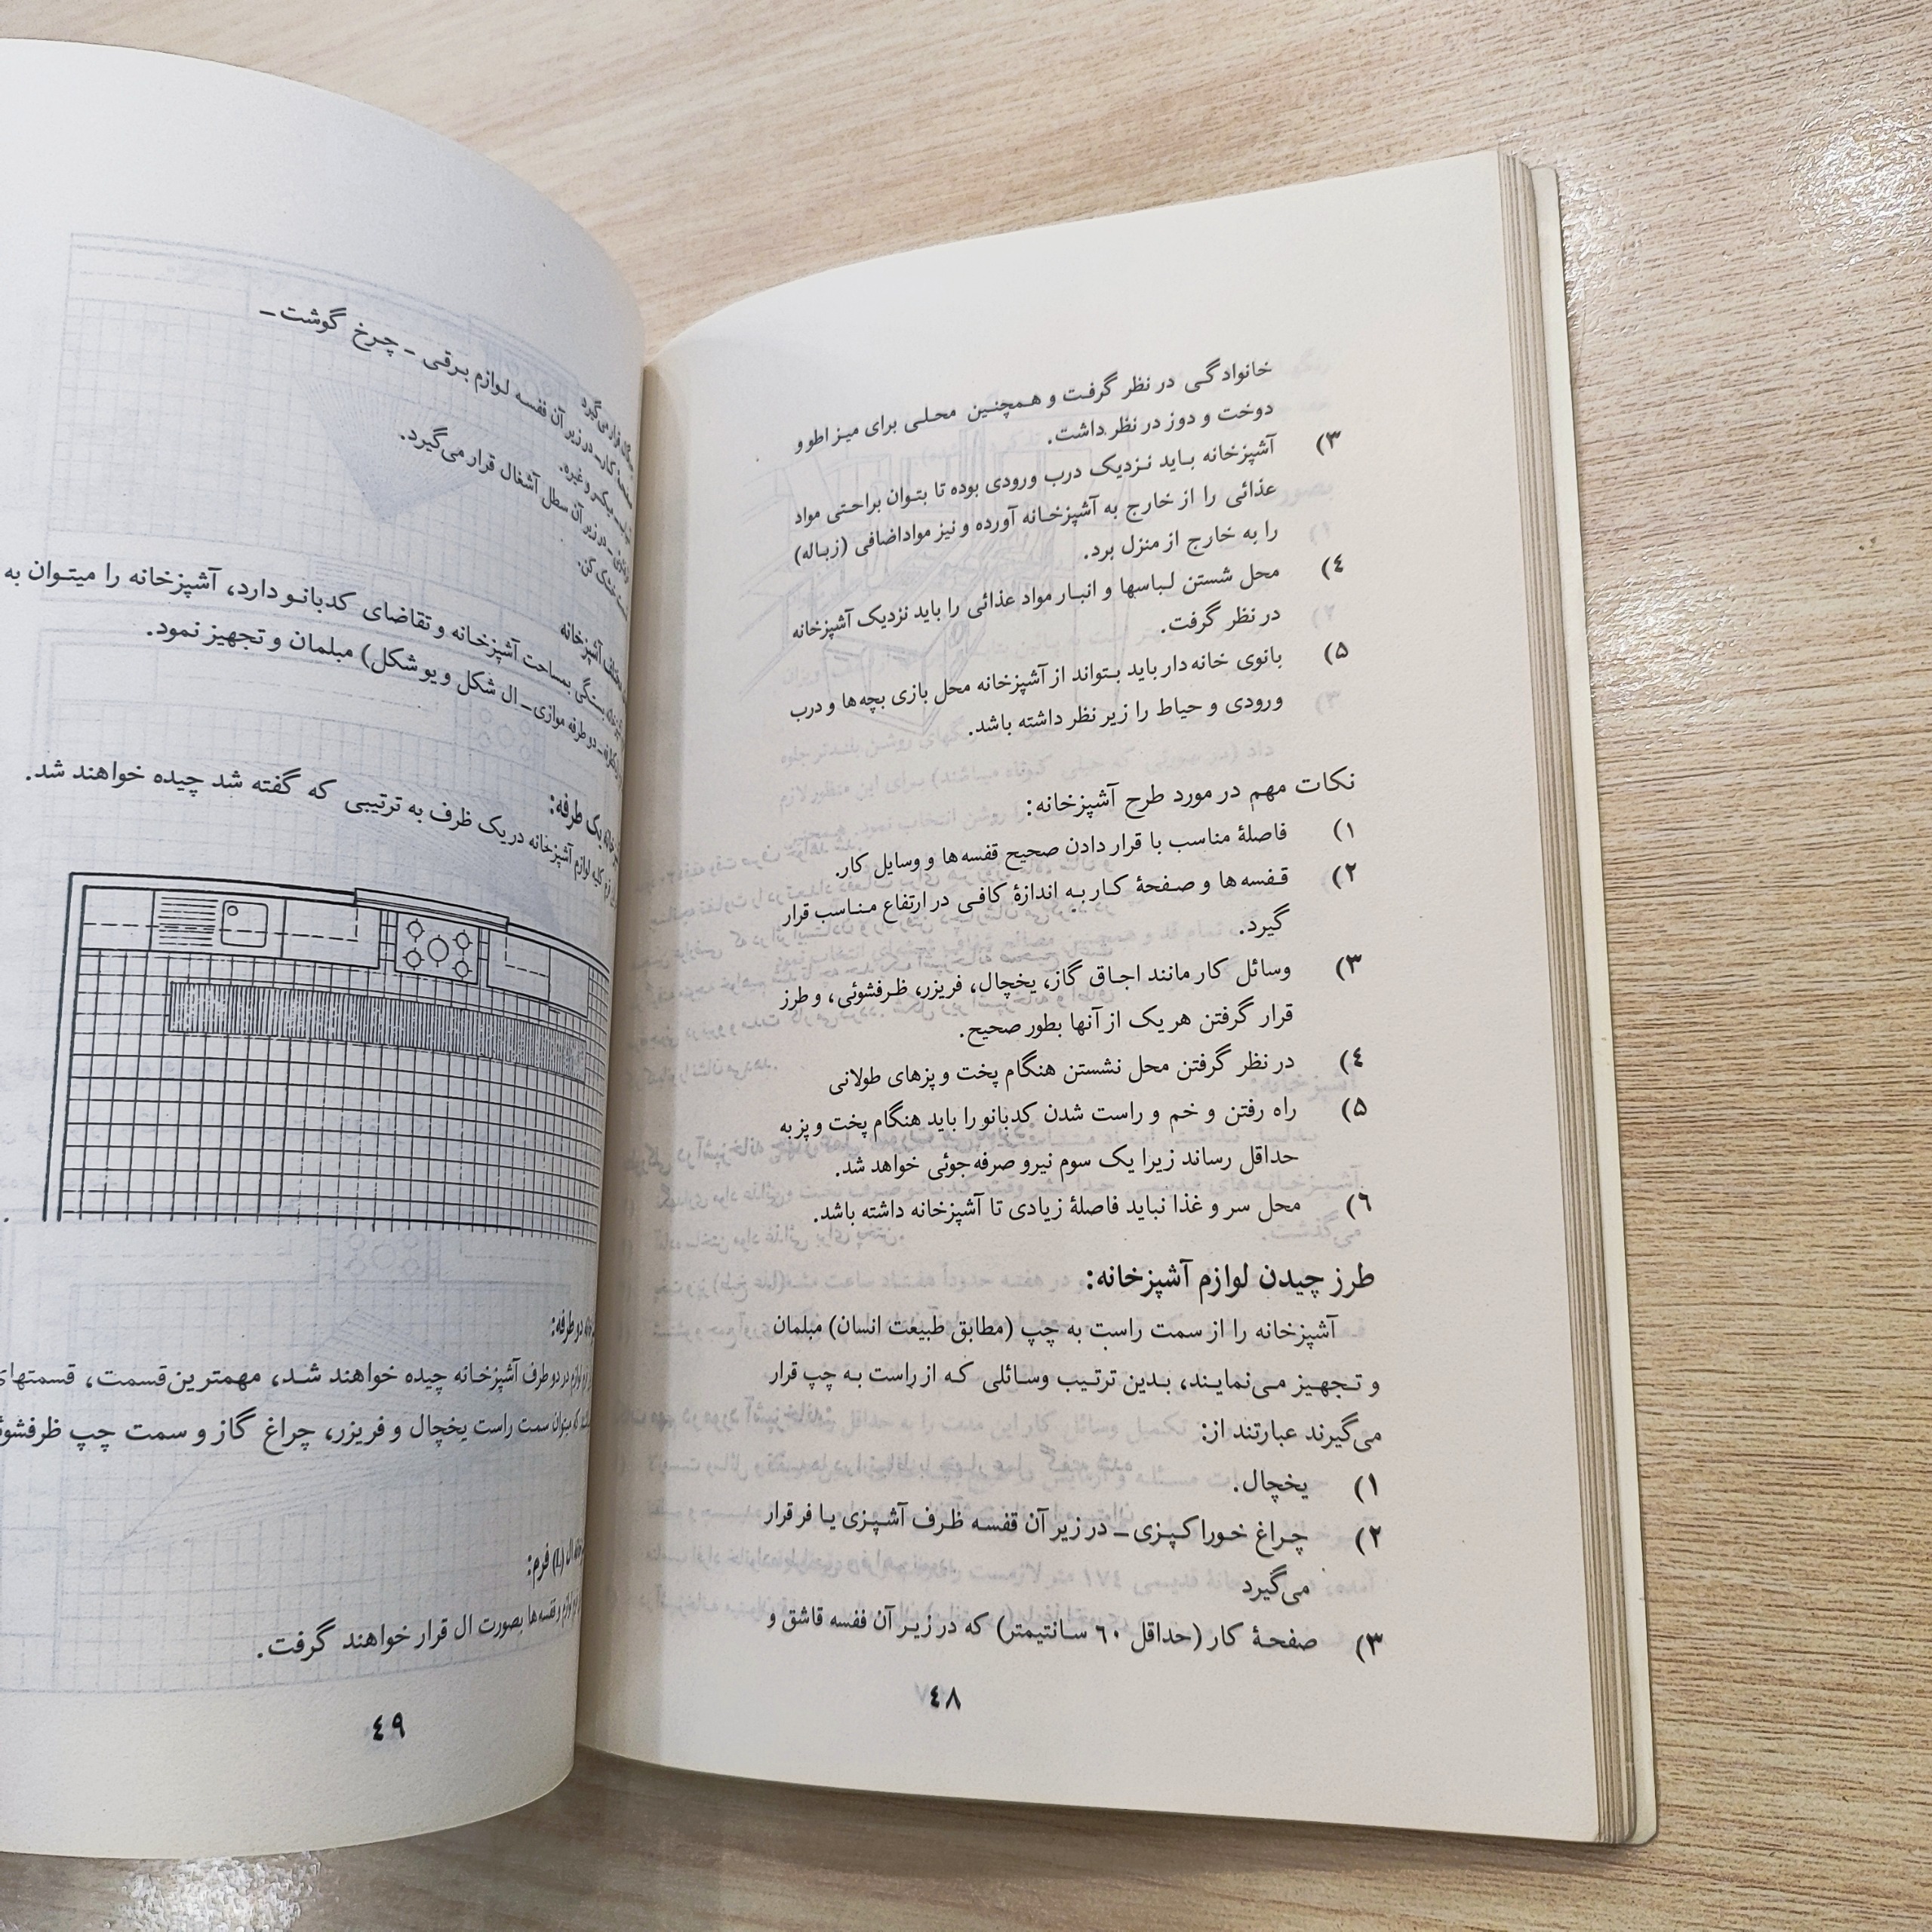 خانوادگی در نظر گرفت و همچنین محلی برای میز اطو و
دوخت و دوز در نظر داشت.
۳) آشپزخانه باید نزدیک درب ورودی بوده تا بتوان براحتی مواد
غذائی را از خارج به آشپزخانه آورده و نیز مواداضافی (زباله)
را به خارج از منزل برد.
٤) محل شستن لباسها و انبار مواد غذائی را باید نزدیک آشپزخانه
در نظر گرفت.
۵) بانوی خانه‌دار باید بتواند از آشپزخانه محل بازی بچه‌ها و درب
ورودی و حیاط را زیر نظر داشته باشد.
نکات مهم در مورد طرح آشپزخانه:
۱) فاصلهٔ مناسب با قرار دادن صحیح قفسه‌ها و وسایل کار.
۲) قفسه‌ها و صفحهٔ کار به اندازهٔ کافی در ارتفاع مناسب قرار
گیرد.
۳) وسائل کار مانند اجاق گاز، یخچال، فریزر، ظرفشوئی، و طرز
قرار گرفتن هر یک از آنها بطور صحیح.
٤) در نظر گرفتن محل نشستن هنگام پخت و پزهای طولانی
۵) راه رفتن و خم و راست شدن کدبانو را باید هنگام پخت و پز به
حداقل رساند زیرا یک سوم نیرو صرفه‌جوئی خواهد شد.
٦) محل سر و غذا نباید فاصلهٔ زیادی تا آشپزخانه داشته باشد.
طرز چیدن لوازم آشپزخانه:
آشپزخانه را از سمت راست به چپ (مطابق طبیعت انسان) مبلمان
و تجهیز می‌نمایند، بدین ترتیب وسائلی که از راست به چپ قرار
می‌گیرند عبارتند از:
۱) یخچال.
۲) چراغ خوراکپزی ــ در زیر آن قفسه ظرف آشپزی یا فر قرار
می‌گیرد
۳) صفحهٔ کار (حداقل ٦۰ سانتیمتر) که در زیر آن قفسه قاشق و
٤۸
قرار می‌گیرد
صفحهٔ کار ــ در زیر آن قفسه لوازم برقی ــ چرخ گوشت ــ
میکسر و غیره.
ــ در زیر آن سطل آشغال قرار می‌گیرد.
خشک کن.
مختلف آشپزخانه
بستگی بمساحت آشپزخانه و تقاضای کدبانو دارد، آشپزخانه را میتوان به
ــ دو طرفه موازی ــ ال شکل و یو شکل) مبلمان و تجهیز نمود.
یک طرفه:
فرم کلیه لوازم آشپزخانه در یک ظرف به ترتیبی که گفته شد چیده خواهند شد.
دو طرفه:
لوازم در دو طرف آشپزخانه چیده خواهند شد، مهمترین قسمت، قسمتهای
که میتوان سمت راست یخچال و فریزر، چراغ گاز و سمت چپ
ال (L) فرم:
لوازم و قفسه‌ها بصورت ال قرار خواهند گرفت.
٤۹